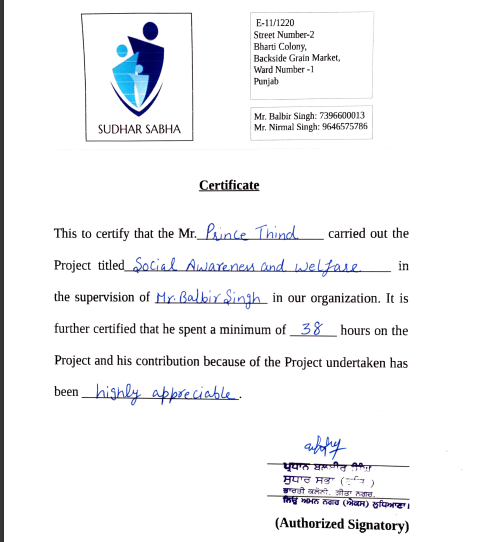 SUDHAR SABHA
E-11/1220
Street Number-2
Bharti Colony,
Backside Grain Market,
Ward Number -1
Punjab
Mr. Balbir Singh: 7396600013
Mr. Nirmal Singh: 9646575786
Certificate
This to certify that the Mr. Prince Thind carried out the
Project titled Social Awareness and welfare in
the supervision of Mr. Balbir Singh in our organization. It is
further certified that he spent a minimum of 38 hours on the
Project and his contribution because of the Project undertaken has
been highly appreciable.
ਪ੍ਰਧਾਨ ਬਲਬੀਰ ਸਿੰਘ
ਸੁਧਾਰ ਸਭਾ
ਭਾਰਤੀ ਕਲੋਨੀ, ਗੀਤਾ ਨਗਰ,
ਨਿਊ ਅਮਨ ਨਗਰ (ਐਕਸ) ਲੁਧਿਆਣਾ।
(Authorized Signatory)